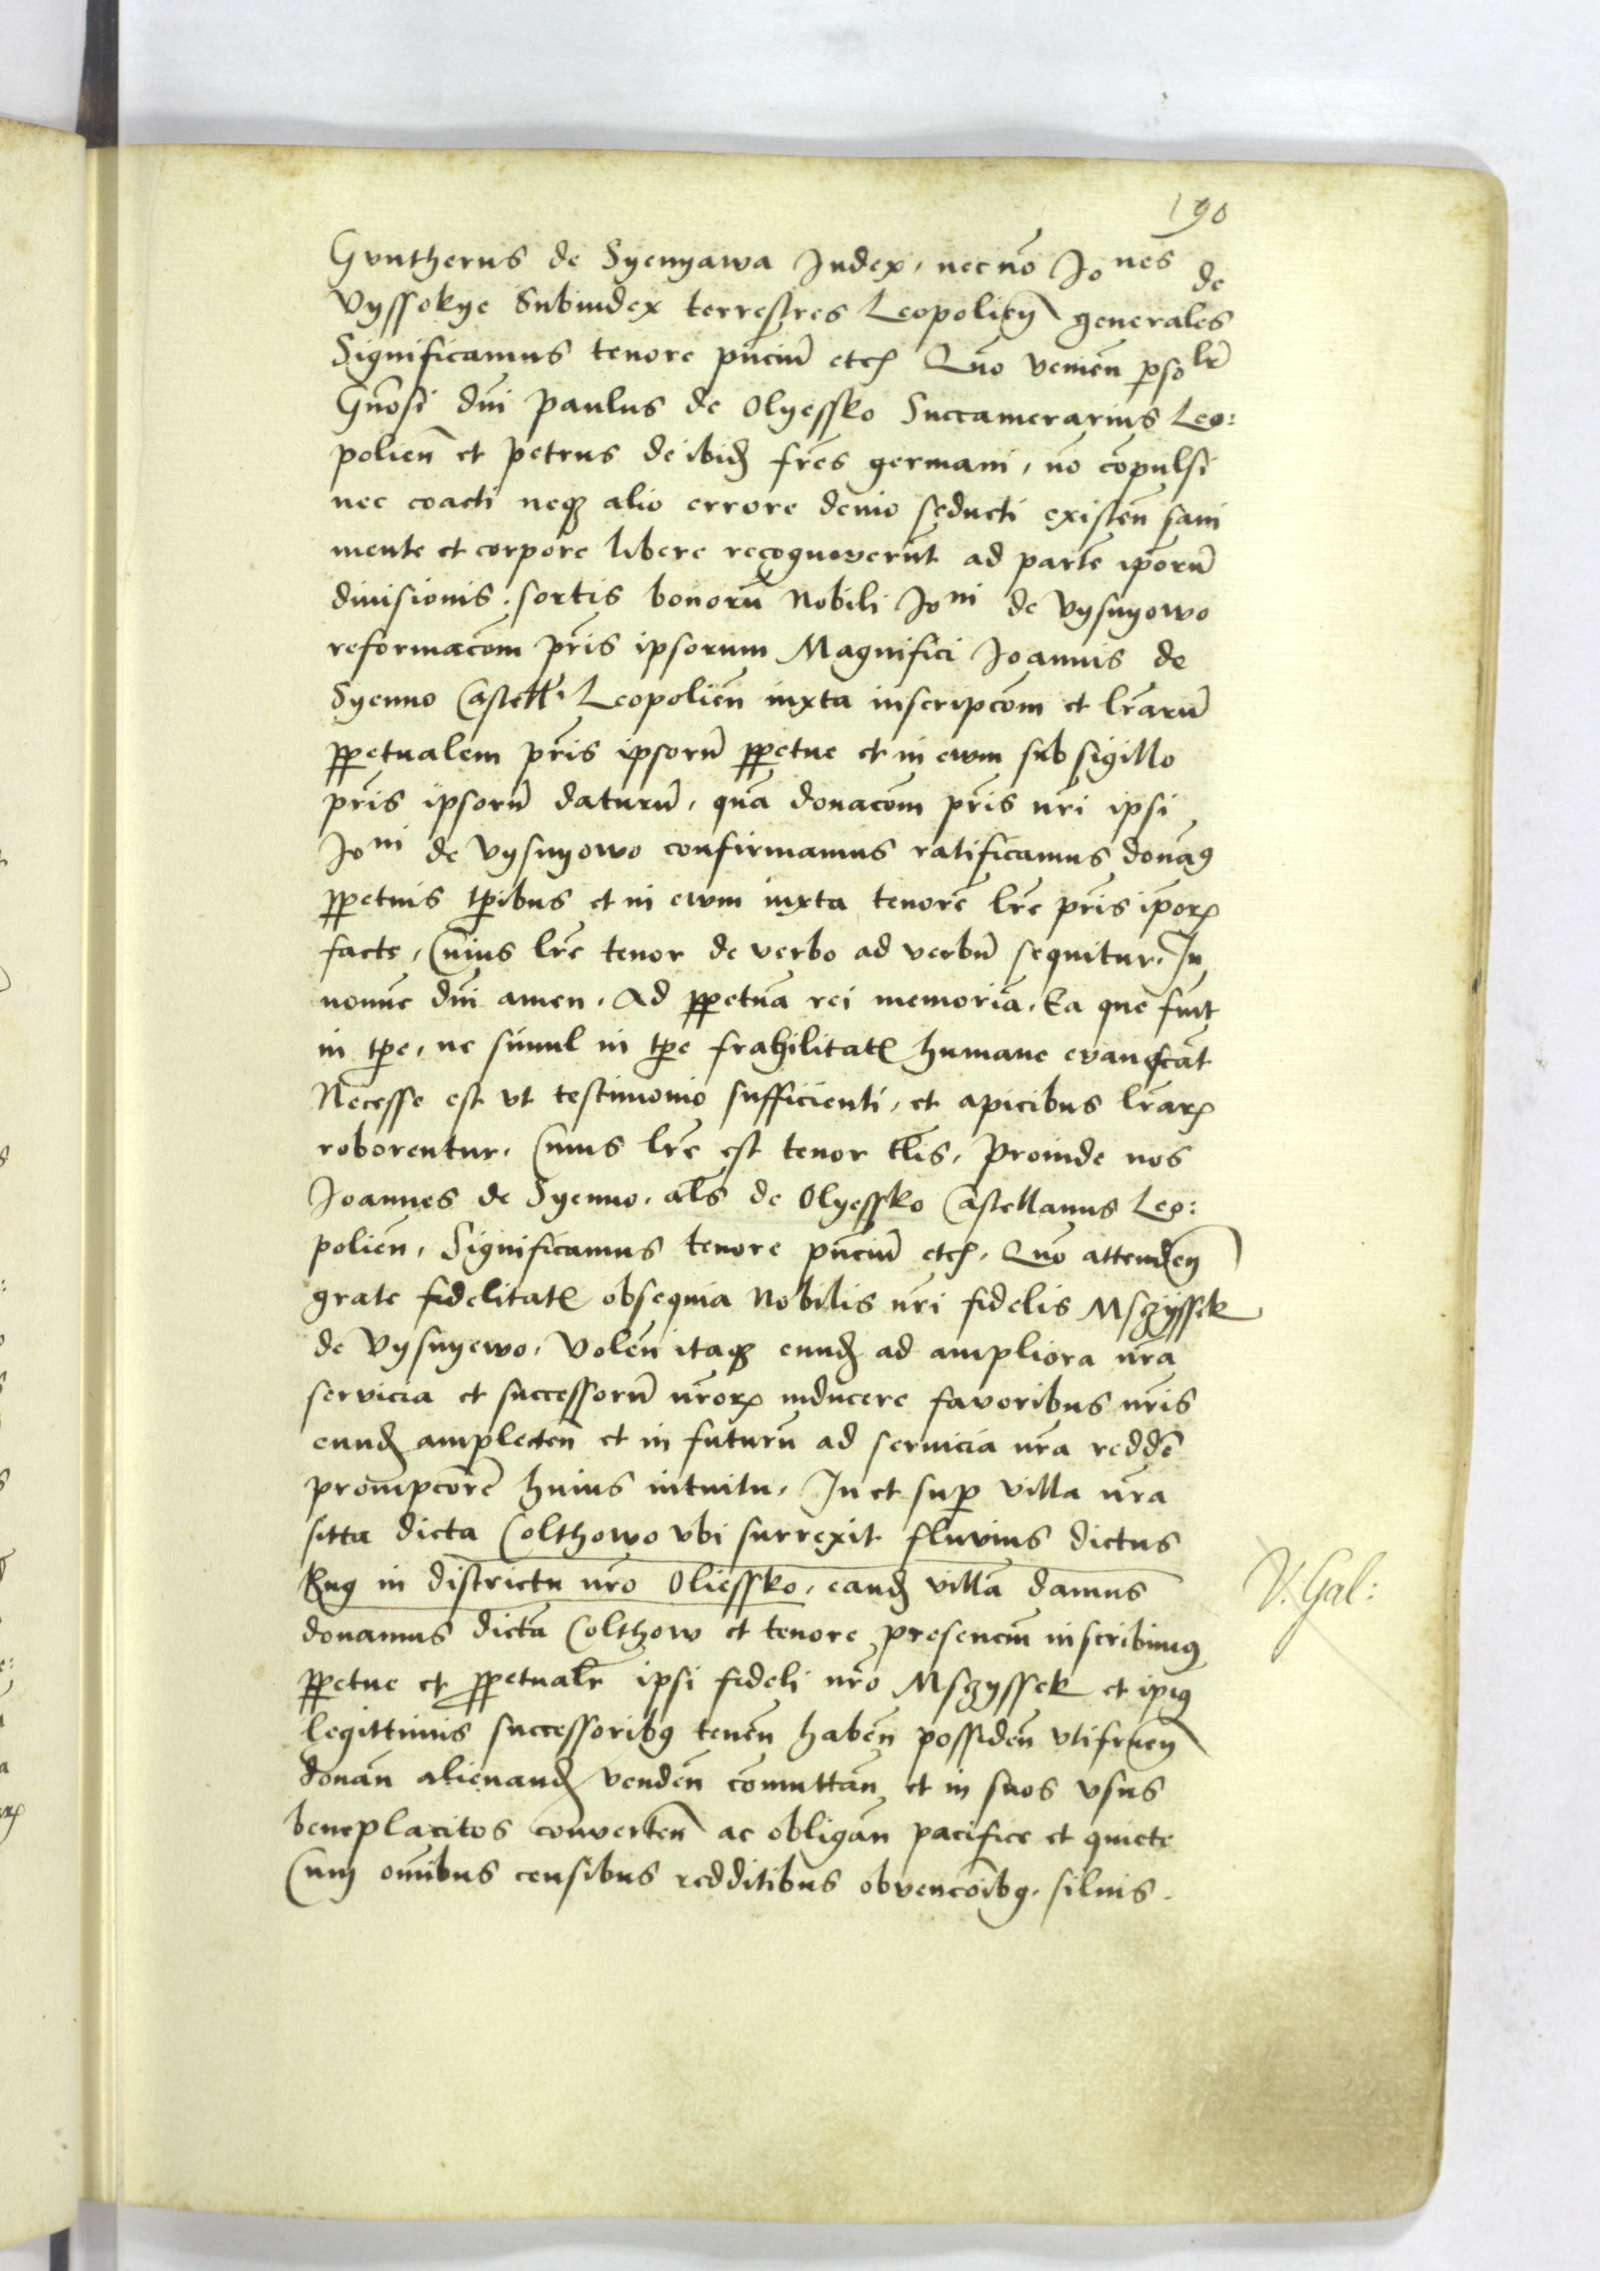 190
Guntherus de Syenyawa Judex, nec nō Jonēs de
Vyssokye Subiudex terrestres Leopolieñ generales
Significamus tenore pñciũ etc Quō venieñ psolr̃
Gñosi dñi Paulus de Olyessko Succamerarius Leo:
polieñ et Petrus de ibid̃ fr̃es germani, nō cõpulsi
nec coacti neq alio errore devio seducti existeñ sani
mente et corpore libere recognoverũt ad partẽ ip̃orũ
divisionis sortis bonorũ Nobili Joni de Vysnyowo
reformacõm pr̃is ipsorum Magnifici Joannis de
Syenno Castell Leopolieñ iuxta inscripcõm et lr̃arũ
ppetualem pr̃is ipsorũ ppetue et in evum sub sigillo
pr̃is ipsorũ daturũ, quã donacõm pr̃is nr̃i ipsi
Joni de Vysnyowo confirmamus ratificamus donamq
ppetuis tp̃ibus et in evum iuxta tenorẽ lr̃e pr̃is ip̃or
facte, Cuius lr̃e tenor de verbo ad verbũ sequitur, In
nomine dñi amen. Ad ppetuã rei memoriã. Ea que fiut
in tpe, ne simul in tpe frahilitat humane evanescãt
Necesse est ut testimonio sufficienti, et apicibus lr̃ar
roborentur, Cuius lr̃e est tenor tlis, Proinde nos
Joannes de Syenno, als de Olyessko Castellanus Leo:
polieñ, Significamus tenore pñciũ etc, Quō attendeñ
grate fidelitat obsequia Nobilis nr̃i fidelis Msczyssek
de Vysnyewo, Voleñ itaq eund̃ ad ampliora nr̃a
servicia et successorũ nr̃or inducere favoribus nr̃is
eund̃ amplecteñ et in futurũ ad servicia nr̃a reddẽ
prompcorẽ huius intuitu, In et sup villa nr̃a
sitta dicta Colthowo ubi surrexit fluvius dictus
Bug in districtu nr̃o Oliessko, eand̃ villã damus
donamus dictã Colthow et tenore presenciũ inscribimus
ppetue et ppetualr̃ ipsi fideli nr̃o Msczyssek et ipiq
legittimis successoribq teneñ habeñ possideñ utifrueñ
donañ alienand̃ vendeñ cõmuttañ et in suos usus
beneplacitos converteñ ac obligañ pacifice et quiete
Cum omĩbus censibus redditibus obvencõibq, silvis.
V. Gal: